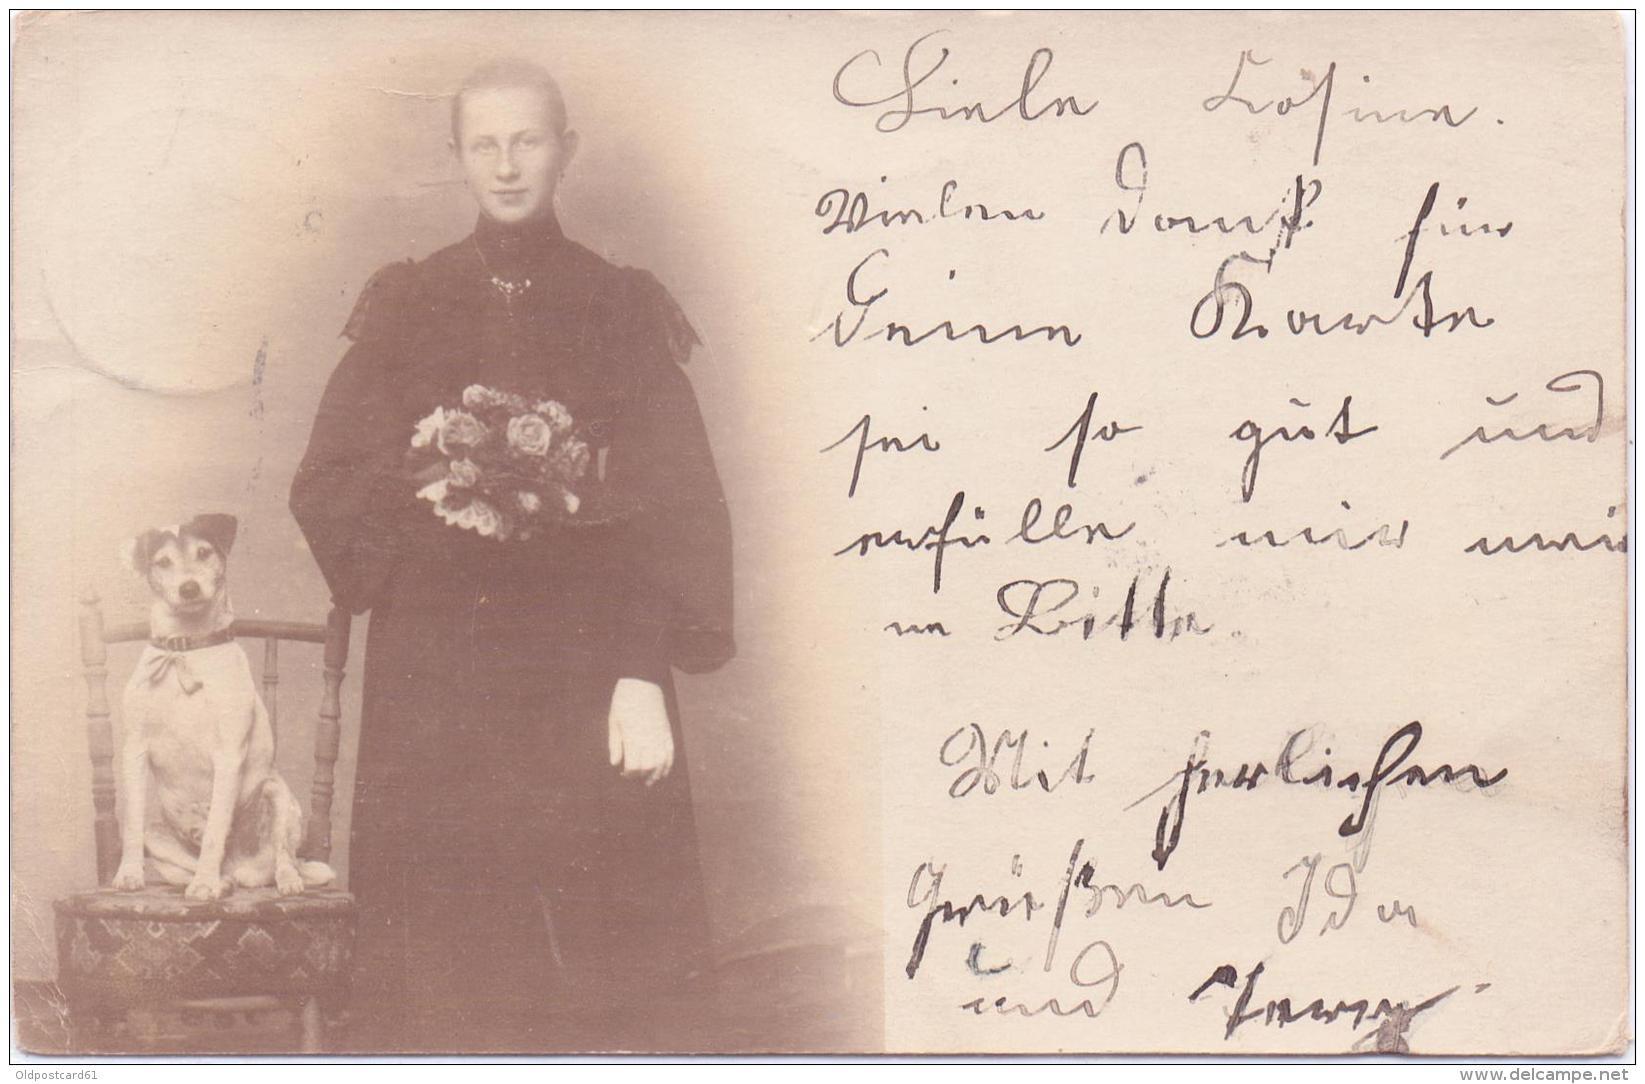 Liebe Cosine.
Vielen Dank für
Deine Karte
sei so gut und
erfülle mir mei
ne Bitte.
Mit herlichen
Grüßen Ida
und Terry
Oldpostcard61
www.delcampe.net